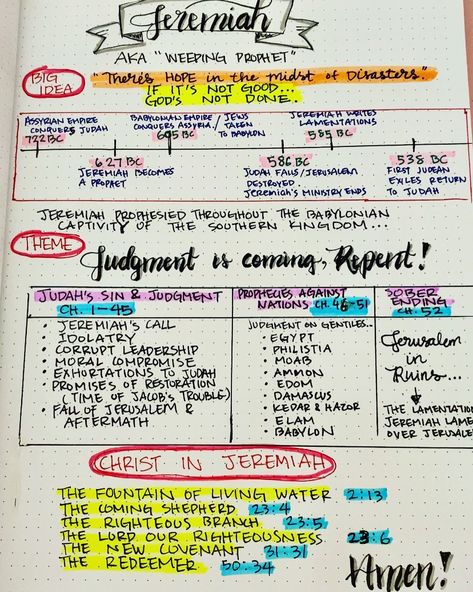 Jeremiah
AKA "WEEPING PROPHET"
BIG IDEA
"There's HOPE in the midst of Disasters."
IF IT'S NOT GOOD...
GOD'S NOT DONE.
ASSYRIAN EMPIRE CONQUERS JUDAH
722 BC
BABYLONIAN EMPIRE / JEWS
CONQUERS ASSYRIA / TAKEN TO BABYLON
605 BC
JEREMIAH WRITES LAMENTATIONS
585 BC
627 BC
JEREMIAH BECOMES A PROPHET
586 BC
JUDAH FALLS/JERUSALEM DESTROYED.
Jeremiah's MINISTRY ENDS
538 BC
FIRST JUDEAN EXILES RETURN TO JUDAH
JEREMIAH PROPHESIED THROUGHOUT THE BABYLONIAN
CAPTIVITY OF THE SOUTHERN KINGDOM...
THEME
Judgment is coming, Repent!
JUDAH'S SIN & JUDGMENT
CH. 1-45
• JEREMIAH'S CALL
• IDOLATRY
• CORRUPT LEADERSHIP
• MORAL COMPROMISE
• EXHORTATIONS TO JUDAH
• PROMISES OF RESTORATION
(TIME OF JACOB'S TROUBLE)
• FALL OF JERUSALEM &
AFTERMATH
PROPHECIES AGAINST
NATIONS CH. 46-51
JUDGMENT ON GENTILES...
• EGYPT
• PHILISTIA
• MOAB
• AMMON
• EDOM
• DAMASCUS
• KEDAR & HAZOR
• ELAM
• BABYLON
SOBER
ENDING
CH. 52
Jerusalem
in
Ruins...
THE LAMENTATION
JEREMIAH LAME
OVER JERUSALE
CHRIST IN JEREMIAH
THE FOUNTAIN OF LIVING WATER 2:13
THE COMING SHEPHERD 23:4
THE RIGHTEOUS BRANCH 23:5
THE LORD OUR RIGHTEOUSNESS 23:6
THE NEW COVENANT 31:31
THE REDEEMER 50:34
Amen!